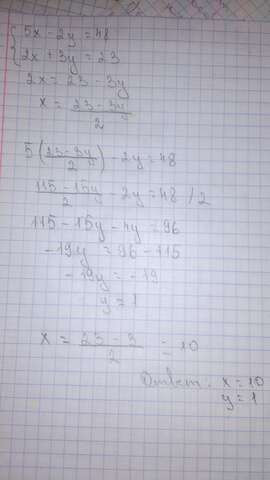 { 5x - 2y = 48
{ 2x + 3y = 23
2x = 23 - 3y
x = (23 - 3y)/2
5((23 - 3y)/2) - 2y = 48
(115 - 15y)/2 - 2y = 48 /2
115 - 15y - 4y = 96
-19y = 96 - 115
-19y = -19
y = 1
x = (23 - 3)/2 = 10
Ответ: x = 10
y = 1